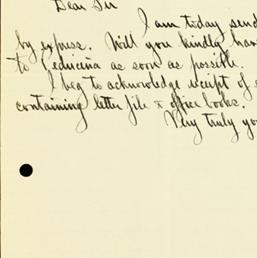 Dear Sir
I am today send
by express. Will you kindly hav
to as soon as possible.
I beg to acknowledge receipt of
containing letter file & office books.
Very truly yo